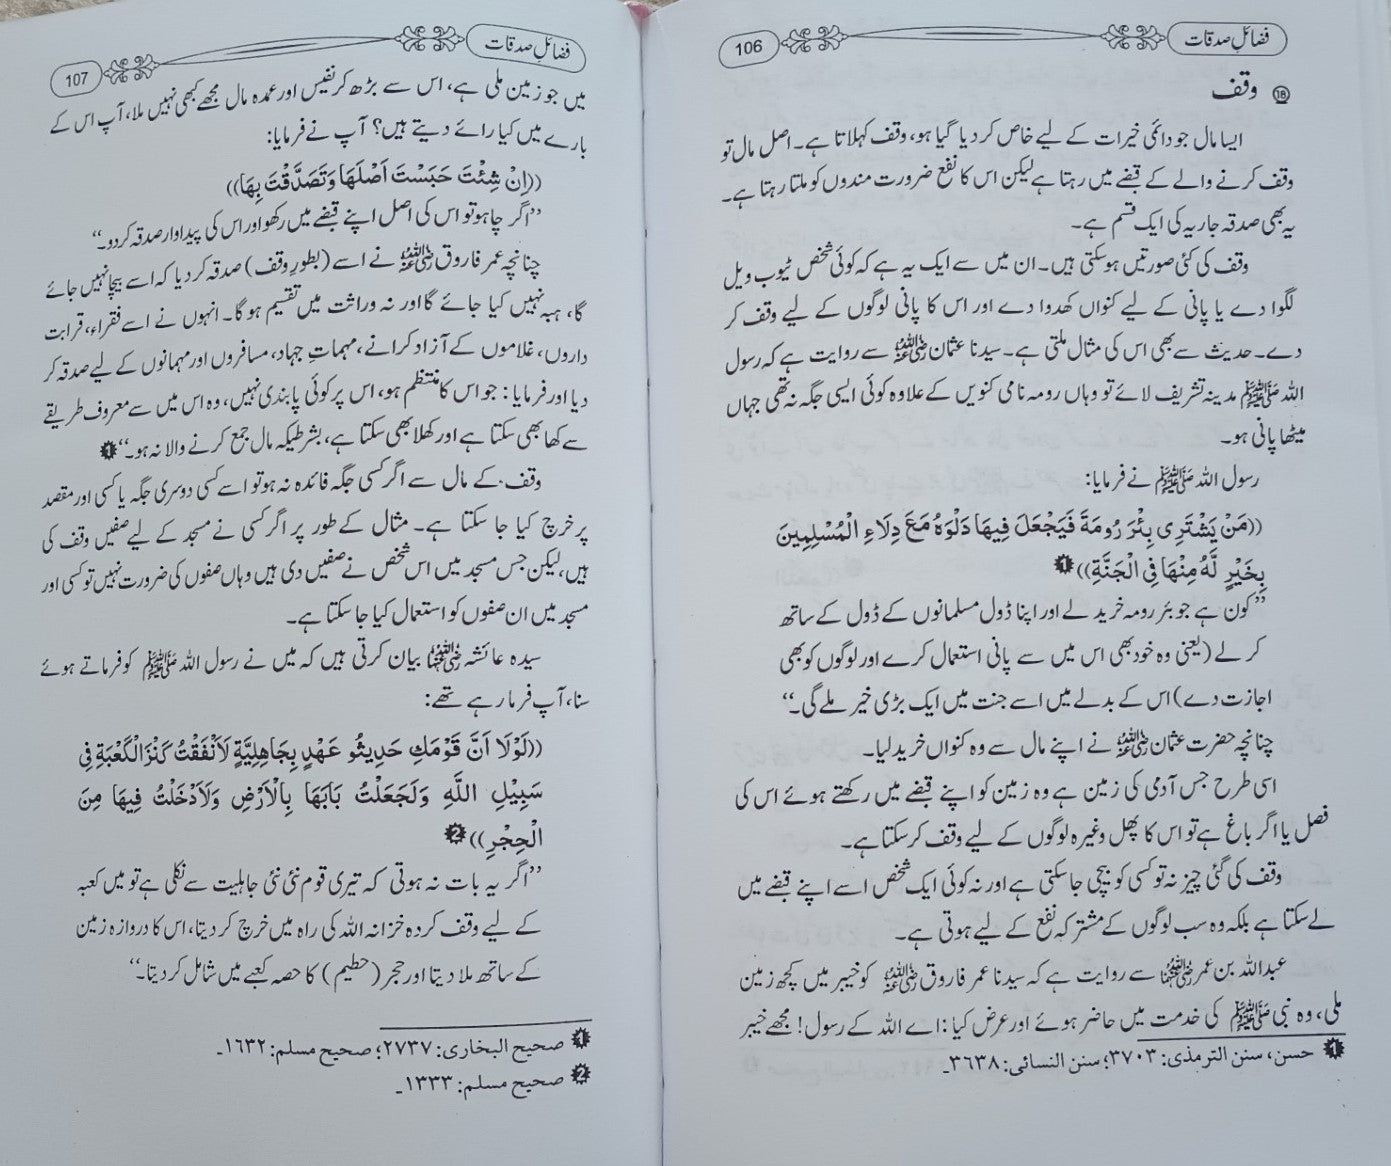 فضائلِ صدقات
106
⑱ وقف
ایسا مال جو دائمی خیرات کے لیے خاص کر دیا گیا ہو، وقف کہلاتا ہے۔ اصل مال تو
وقف کرنے والے کے قبضے میں رہتا ہے لیکن اس کا نفع ضرورت مندوں کو ملتا رہتا ہے۔
یہ بھی صدقہ جاریہ کی ایک قسم ہے۔
وقف کی کئی صورتیں ہوسکتی ہیں۔ ان میں سے ایک یہ ہے کہ کوئی شخص ٹیوب ویل
لگوا دے یا پانی کے لیے کنواں کھدوا دے اور اس کا پانی لوگوں کے لیے وقف کر
دے۔ حدیث سے بھی اس کی مثال ملتی ہے۔ سیدنا عثمان رضی اللہ عنہ سے روایت ہے کہ رسول
اللہ ﷺ مدینہ تشریف لائے تو وہاں رومہ نامی کنویں کے علاوہ کوئی ایسی جگہ نہ تھی جہاں
میٹھا پانی ہو۔
رسول اللہ ﷺ نے فرمایا:
((مَنْ يَشْتَرِى بِئْرَ رُومَةَ فَيَجْعَلَ فِيهَا دَلْوَهُ مَعَ دِلَاءِ الْمُسْلِمِينَ
بِخَيْرٍ لَّهُ مِنْهَا فِى الْجَنَّةِ))❶
”کون ہے جو بئر رومہ خرید لے اور اپنا ڈول مسلمانوں کے ڈول کے ساتھ
کر لے (یعنی وہ خود بھی اس میں سے پانی استعمال کرے اور لوگوں کو بھی
اجازت دے) اس کے بدلے میں اسے جنت میں ایک بڑی خیر ملے گی۔“
چنانچہ حضرت عثمان رضی اللہ عنہ نے اپنے مال سے وہ کنواں خرید لیا۔
اسی طرح جس آدمی کی زمین ہے وہ زمین کو اپنے قبضے میں رکھتے ہوئے اس کی
فصل یا اگر باغ ہے تو اس کا پھل وغیرہ لوگوں کے لیے وقف کرسکتا ہے۔
وقف کی گئی چیز نہ تو کسی کو بیچی جاسکتی ہے اور نہ کوئی ایک شخص اسے اپنے قبضے میں
لے سکتا ہے بلکہ وہ سب لوگوں کے مشترکہ نفع کے لیے ہوتی ہے۔
عبداللہ بن عمر رضی اللہ عنہما سے روایت ہے کہ سیدنا عمر فاروق رضی اللہ عنہ کو خیبر میں کچھ زمین
ملی، وہ نبی ﷺ کی خدمت میں حاضر ہوئے اور عرض کیا: اے اللہ کے رسول! مجھے خیبر
❶ حسن، سنن الترمذی: ۳۷۰۳؛ سنن النسائی: ۳۶۳۸۔
فضائلِ صدقات
107
میں جو زمین ملی ہے، اس سے بڑھ کر نفیس اور عمدہ مال مجھے کبھی نہیں ملا، آپ اس کے
بارے میں کیا رائے دیتے ہیں؟ آپ نے فرمایا:
((اِنْ شِئْتَ حَبَسْتَ اَصْلَهَا وَتَصَدَّقْتَ بِهَا))
”اگر چاہو تو اس کی اصل اپنے قبضے میں رکھو اور اس کی پیداوار صدقہ کر دو۔“
چنانچہ عمر فاروق رضی اللہ عنہ نے اسے (بطورِ وقف) صدقہ کر دیا کہ اسے بیچا نہیں جائے
گا، ہبہ نہیں کیا جائے گا اور نہ وراثت میں تقسیم ہو گا۔ انہوں نے اسے فقراء، قرابت
داروں، غلاموں کے آزاد کرانے، مہماتِ جہاد، مسافروں اور مہمانوں کے لیے صدقہ کر
دیا اور فرمایا: جو اس کا منتظم ہو، اس پر کوئی پابندی نہیں، وہ اس میں سے معروف طریقے
سے کھا بھی سکتا ہے اور کھلا بھی سکتا ہے، بشرطیکہ مال جمع کرنے والا نہ ہو۔“❶
وقف کے مال سے اگر کسی جگہ فائدہ نہ ہو تو اسے کسی دوسری جگہ یا کسی اور مقصد
پر خرچ کیا جا سکتا ہے۔ مثال کے طور پر اگر کسی نے مسجد کے لیے صفیں وقف کی
ہیں، لیکن جس مسجد میں اس شخص نے صفیں دی ہیں وہاں صفوں کی ضرورت نہیں تو کسی اور
مسجد میں ان صفوں کو استعمال کیا جا سکتا ہے۔
سیدہ عائشہ رضی اللہ عنہا بیان کرتی ہیں کہ میں نے رسول اللہ ﷺ کو فرماتے ہوئے
سنا، آپ فرما رہے تھے:
((لَوْلَا اَنَّ قَوْمَكِ حَدِيثُو عَهْدٍ بِجَاهِلِيَّةٍ لَاَنْفَقْتُ كَنْزَ الْكَعْبَةِ فِى
سَبِيْلِ اللَّهِ وَلَجَعَلْتُ بَابَهَا بِالْاَرْضِ وَلَاَدْخَلْتُ فِيهَا مِنَ
الْحِجْرِ))❷
”اگر یہ بات نہ ہوتی کہ تیری قوم نئی نئی جاہلیت سے نکلی ہے تو میں کعبہ
کے لیے وقف کردہ خزانہ اللہ کی راہ میں خرچ کر دیتا، اس کا دروازہ زمین
کے ساتھ ملا دیتا اور حجر (حطیم) کا حصہ کعبے میں شامل کر دیتا۔“
❶ صحیح البخاری: ۲۷۳۷؛ صحیح مسلم: ۱۶۳۲۔
❷ صحیح مسلم: ۱۳۳۳۔